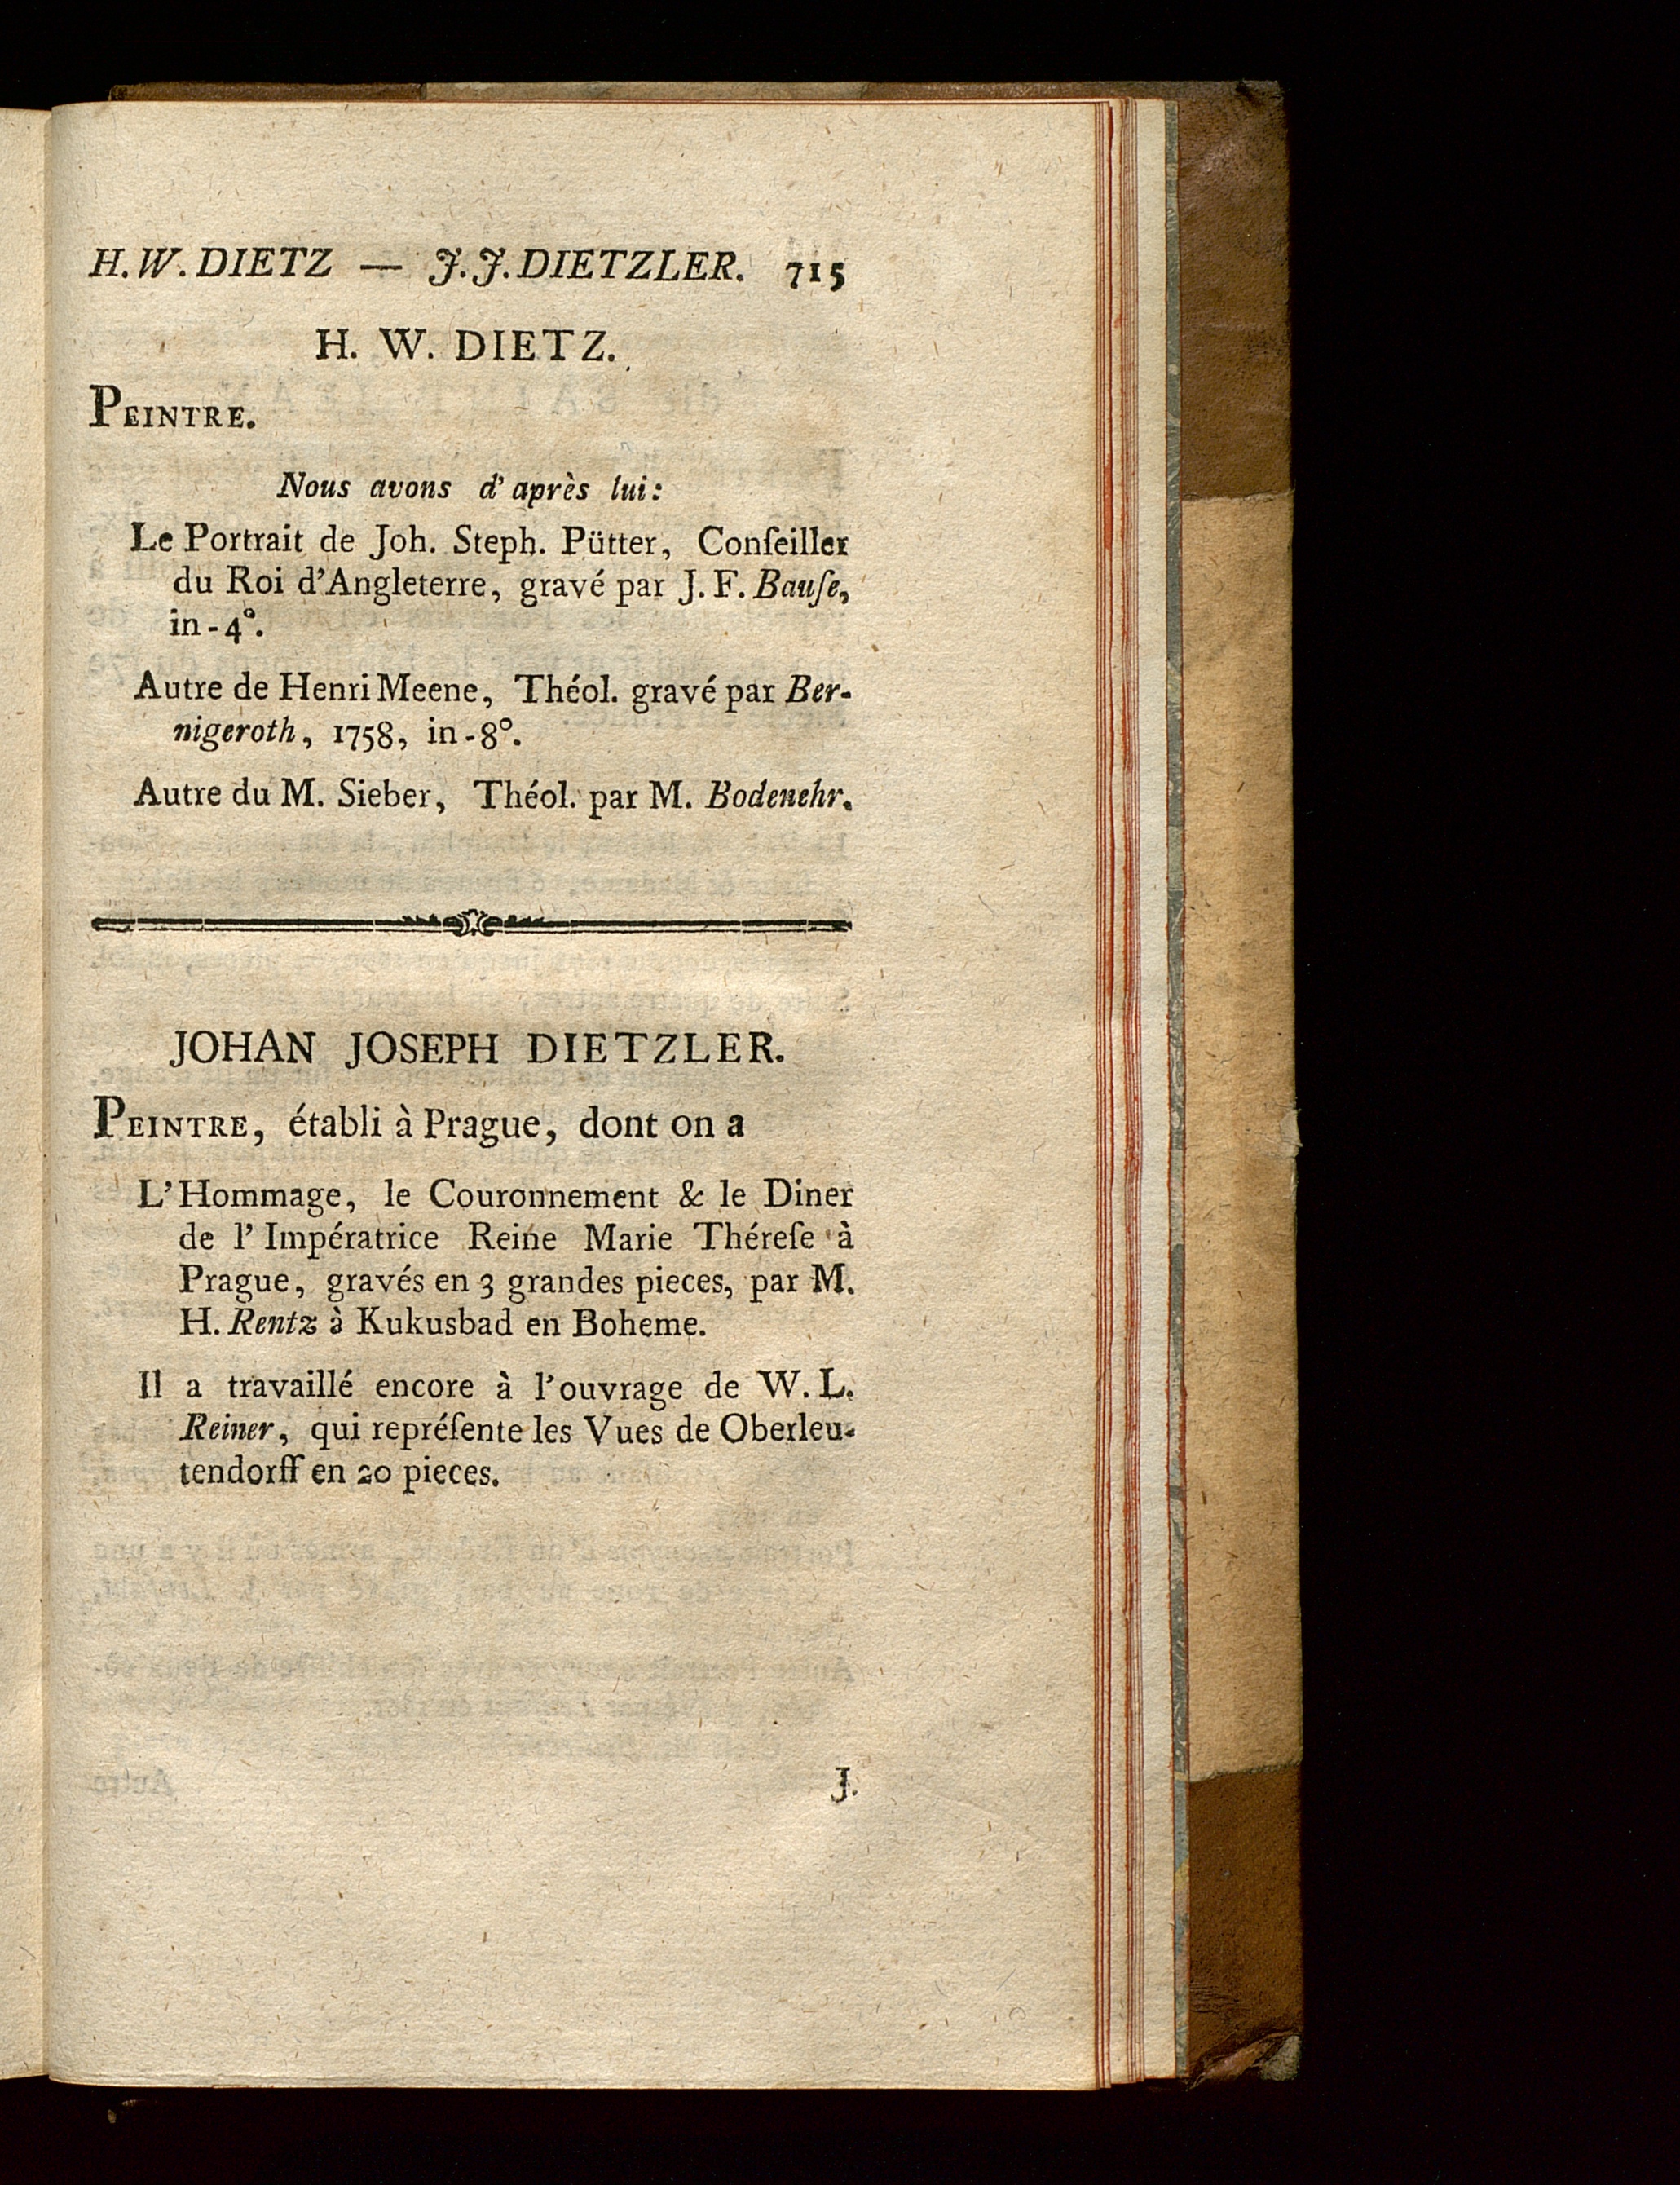 H.W. DIETZ — J.J. DIETZLER. 715
H. W. DIETZ.
PEINTRE.
Nous avons d'après lui:
Le Portrait de Joh. Steph. Pütter, Conſeiller
du Roi d'Angleterre, gravé par J. F. Bauſe,
in-4°.
Autre de Henri Meene, Théol. gravé par Ber-
nigeroth, 1758, in-8°.
Autre du M. Sieber, Théol. par M. Bodenehr.
JOHAN JOSEPH DIETZLER.
PEINTRE, établi à Prague, dont on a
L'Hommage, le Couronnement & le Diner
de l'Impératrice Reine Marie Théreſe à
Prague, gravés en 3 grandes pieces, par M.
H. Rentz à Kukusbad en Boheme.
Il a travaillé encore à l'ouvrage de W. L.
Reiner, qui repréſente les Vues de Oberleu-
tendorff en 20 pieces.
J.